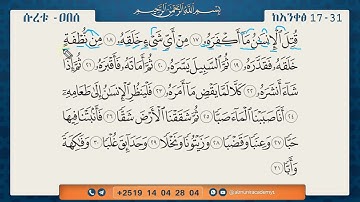 ሱረቱ - ዐበሰ
بسم الله الرحمن الرحيم
ከአንቀፅ 17 - 31
قُتِلَ ٱلْإِنسَٰنُ مَآ أَكْفَرَهُۥ ١٧ مِنْ أَيِّ شَيْءٍ خَلَقَهُۥ ١٨ مِن نُّطْفَةٍ
خَلَقَهُۥ فَقَدَّرَهُۥ ١٩ ثُمَّ ٱلسَّبِيلَ يَسَّرَهُۥ ٢٠ ثُمَّ أَمَاتَهُۥ فَأَقْبَرَهُۥ ٢١ ثُمَّ إِذَا
شَآءَ أَنشَرَهُۥ ٢٢ كَلَّا لَمَّا يَقْضِ مَآ أَمَرَهُۥ ٢٣ فَلْيَنظُرِ ٱلْإِنسَٰنُ إِلَىٰ طَعَامِهِۦٓ
٢٤ أَنَّا صَبَبْنَا ٱلْمَآءَ صَبًّا ٢٥ ثُمَّ شَقَقْنَا ٱلْأَرْضَ شَقًّا ٢٦ فَأَنۢبَتْنَا فِيهَا
حَبًّا ٢٧ وَعِنَبًا وَقَضْبًا ٢٨ وَزَيْتُونًا وَنَخْلًا ٢٩ وَحَدَآئِقَ غُلْبًا ٣٠ وَفَٰكِهَةً
وَأَبًّا ٣١
+2519 14 04 28 04